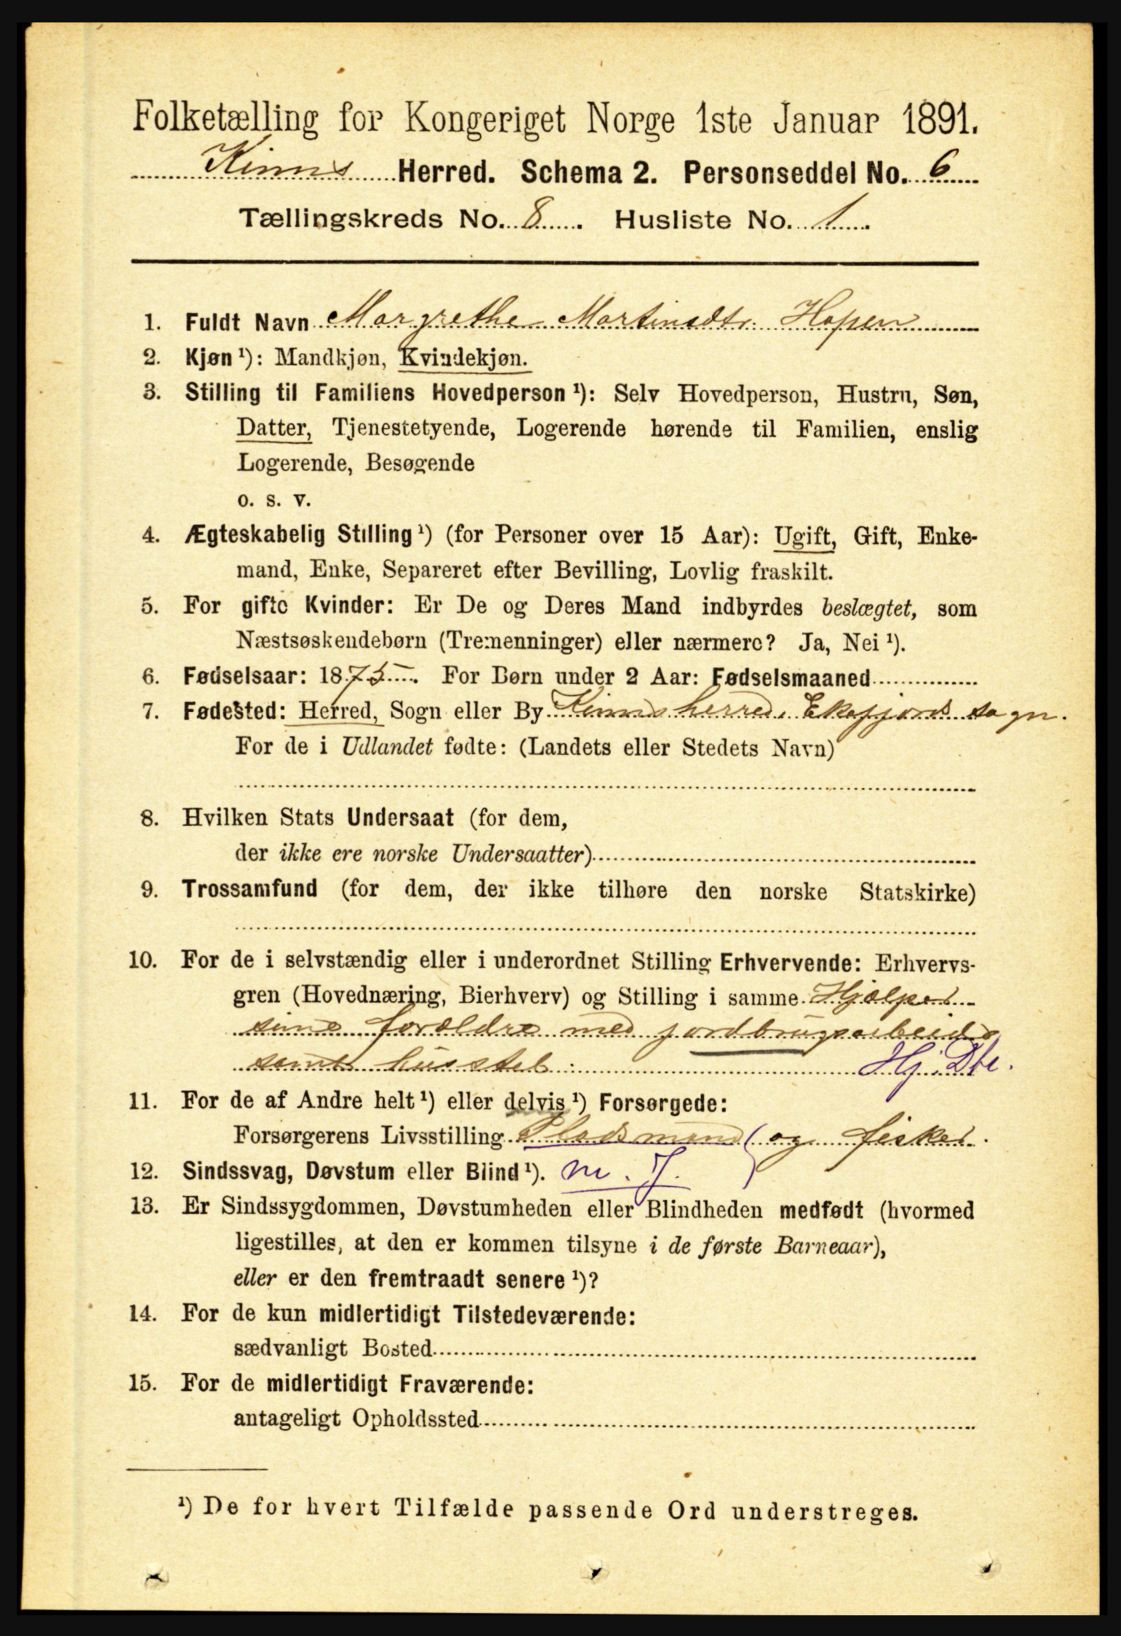 Folketælling for Kongeriget Norge 1ste Januar 1891.
Kinns Herred. Schema 2. Personseddel No. 6
Tællingskreds No. 8. Husliste No. 1.
1. Fuldt Navn Margrethe Martinsdtr. Hopen
2. Kjøn ¹): Mandkjøn, Kvindekjøn.
3. Stilling til Familiens Hovedperson ¹): Selv Hovedperson, Hustru, Søn,
Datter, Tjenestetyende, Logerende hørende til Familien, enslig
Logerende, Besøgende
o. s. v.
4. Ægteskabelig Stilling ¹) (for Personer over 15 Aar): Ugift, Gift, Enke-
mand, Enke, Separeret efter Bevilling, Lovlig fraskilt.
5. For gifte Kvinder: Er De og Deres Mand indbyrdes beslægtet, som
Næstsøskendebørn (Tremenninger) eller nærmere? Ja, Nei ¹).
6. Fødselsaar: 1875. For Børn under 2 Aar: Fødselsmaaned
7. Fødested: Herred, Sogn eller By Kinns herred, Ekefjords sogn.
For de i Udlandet fødte: (Landets eller Stedets Navn)
8. Hvilken Stats Undersaat (for dem,
der ikke ere norske Undersaatter)
9. Trossamfund (for dem, der ikke tilhøre den norske Statskirke)
10. For de i selvstændig eller i underordnet Stilling Erhvervende: Erhvervs-
gren (Hovednæring, Bierhverv) og Stilling i samme Hjælper
sine forældre med jordbrugsarbeide
samt husstel. Hj. Dtr.
11. For de af Andre helt ¹) eller delvis ¹) Forsørgede:
Forsørgerens Livsstilling Pladsmand og fisker.
12. Sindssvag, Døvstum eller Blind ¹). m. J.
13. Er Sindssygdommen, Døvstumheden eller Blindheden medfødt (hvormed
ligestilles, at den er kommen tilsyne i de første Barneaar),
eller er den fremtraadt senere ¹)?
14. For de kun midlertidigt Tilstedeværende:
sædvanligt Bosted
15. For de midlertidigt Fraværende:
antageligt Opholdssted
¹) De for hvert Tilfælde passende Ord understreges.